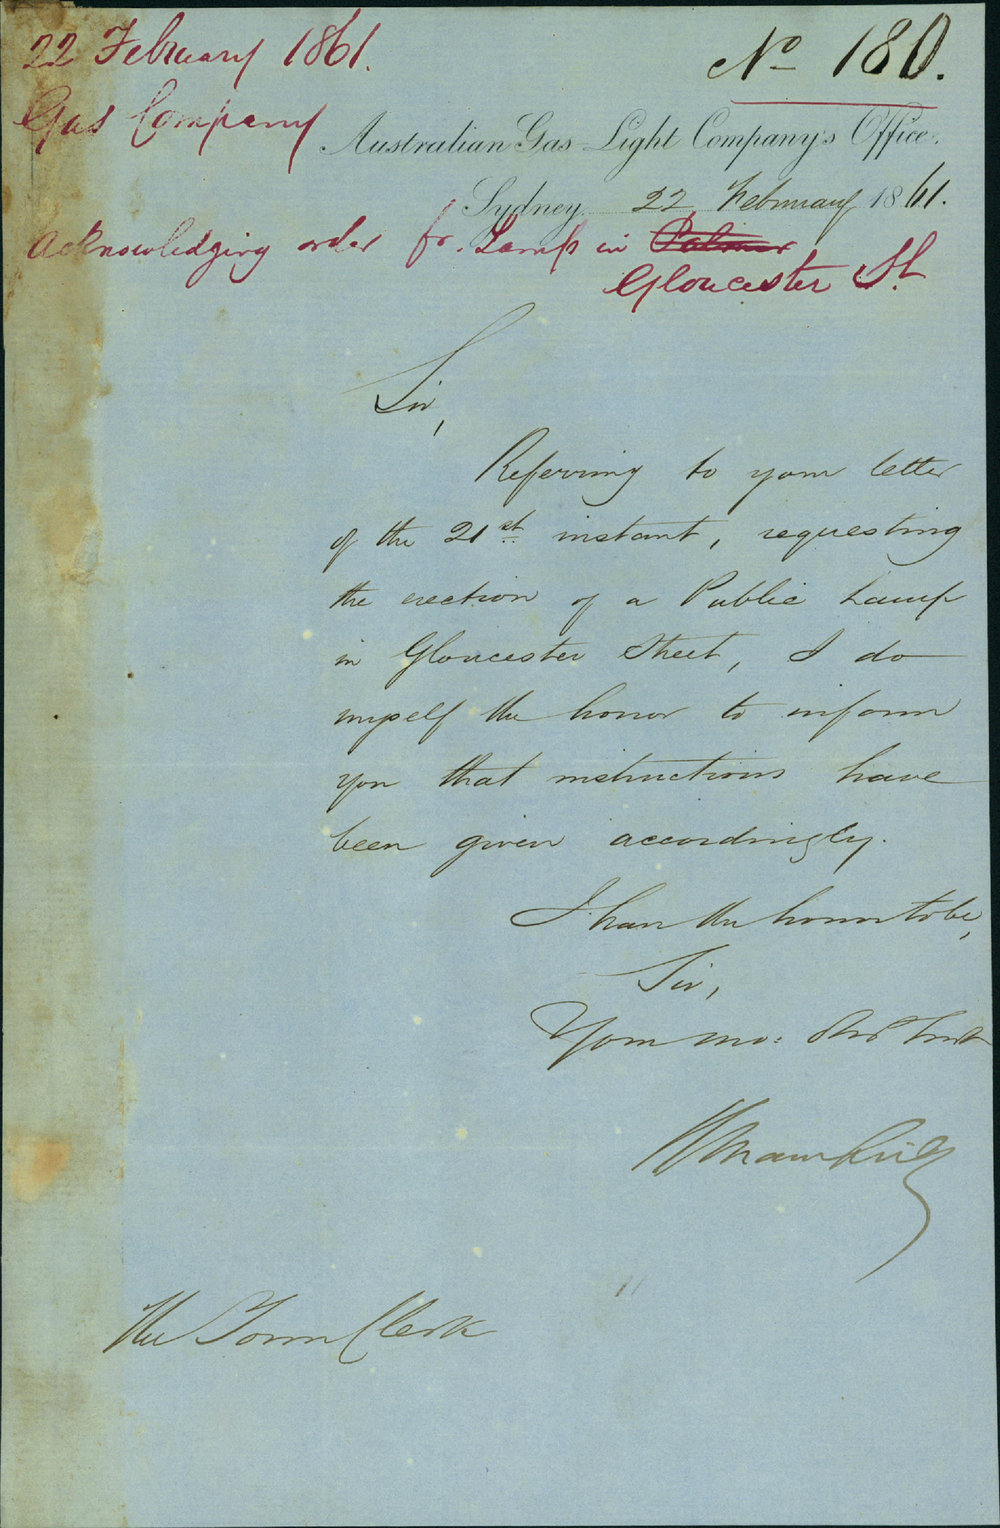 22 February 1861.
No 180.
Gas Company
Australian Gas Light Company's Office.
Sydney 22 February 1861.
Acknowledging order for Lamp in Palmer
Gloucester St
Sir,
Referring to your letter
of the 21st instant, requesting
the erection of a Public Lamp
in Gloucester Street, I do
myself the honor to inform
you that instructions have
been given accordingly.
I have the honor to be,
Sir,
Your mo: Obt Servt
The Town Clerk